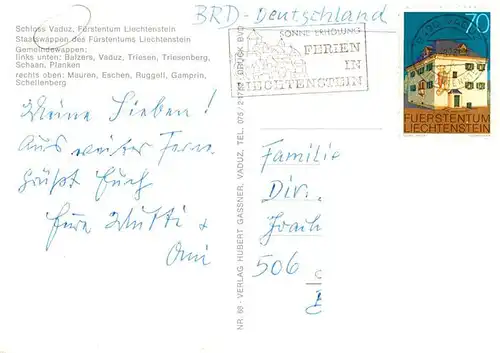 Schloss Vaduz, Fürstentum Liechtenstein
Staatswappen des Fürstentums Liechtenstein
Gemeindewappen:
links unten: Balzers, Vaduz, Triesen, Triesenberg,
Schaan, Planken
rechts oben: Mauren, Eschen, Ruggell, Gamprin,
Schellenberg
BRD-Deutschland
SONNE ERHOLUNG
FERIEN
IN
LIECHTENSTEIN
70
FUERSTENTUM
LIECHTENSTEIN
Meine Lieben!
Aus weiter Ferne
grüßt Euch
Eure Mutti +
Omi
NR. 68 - VERLAG HUBERT GASSNER, VADUZ, TEL. 075 / DRUCK: BVD
Familie
Div.
Joach
506